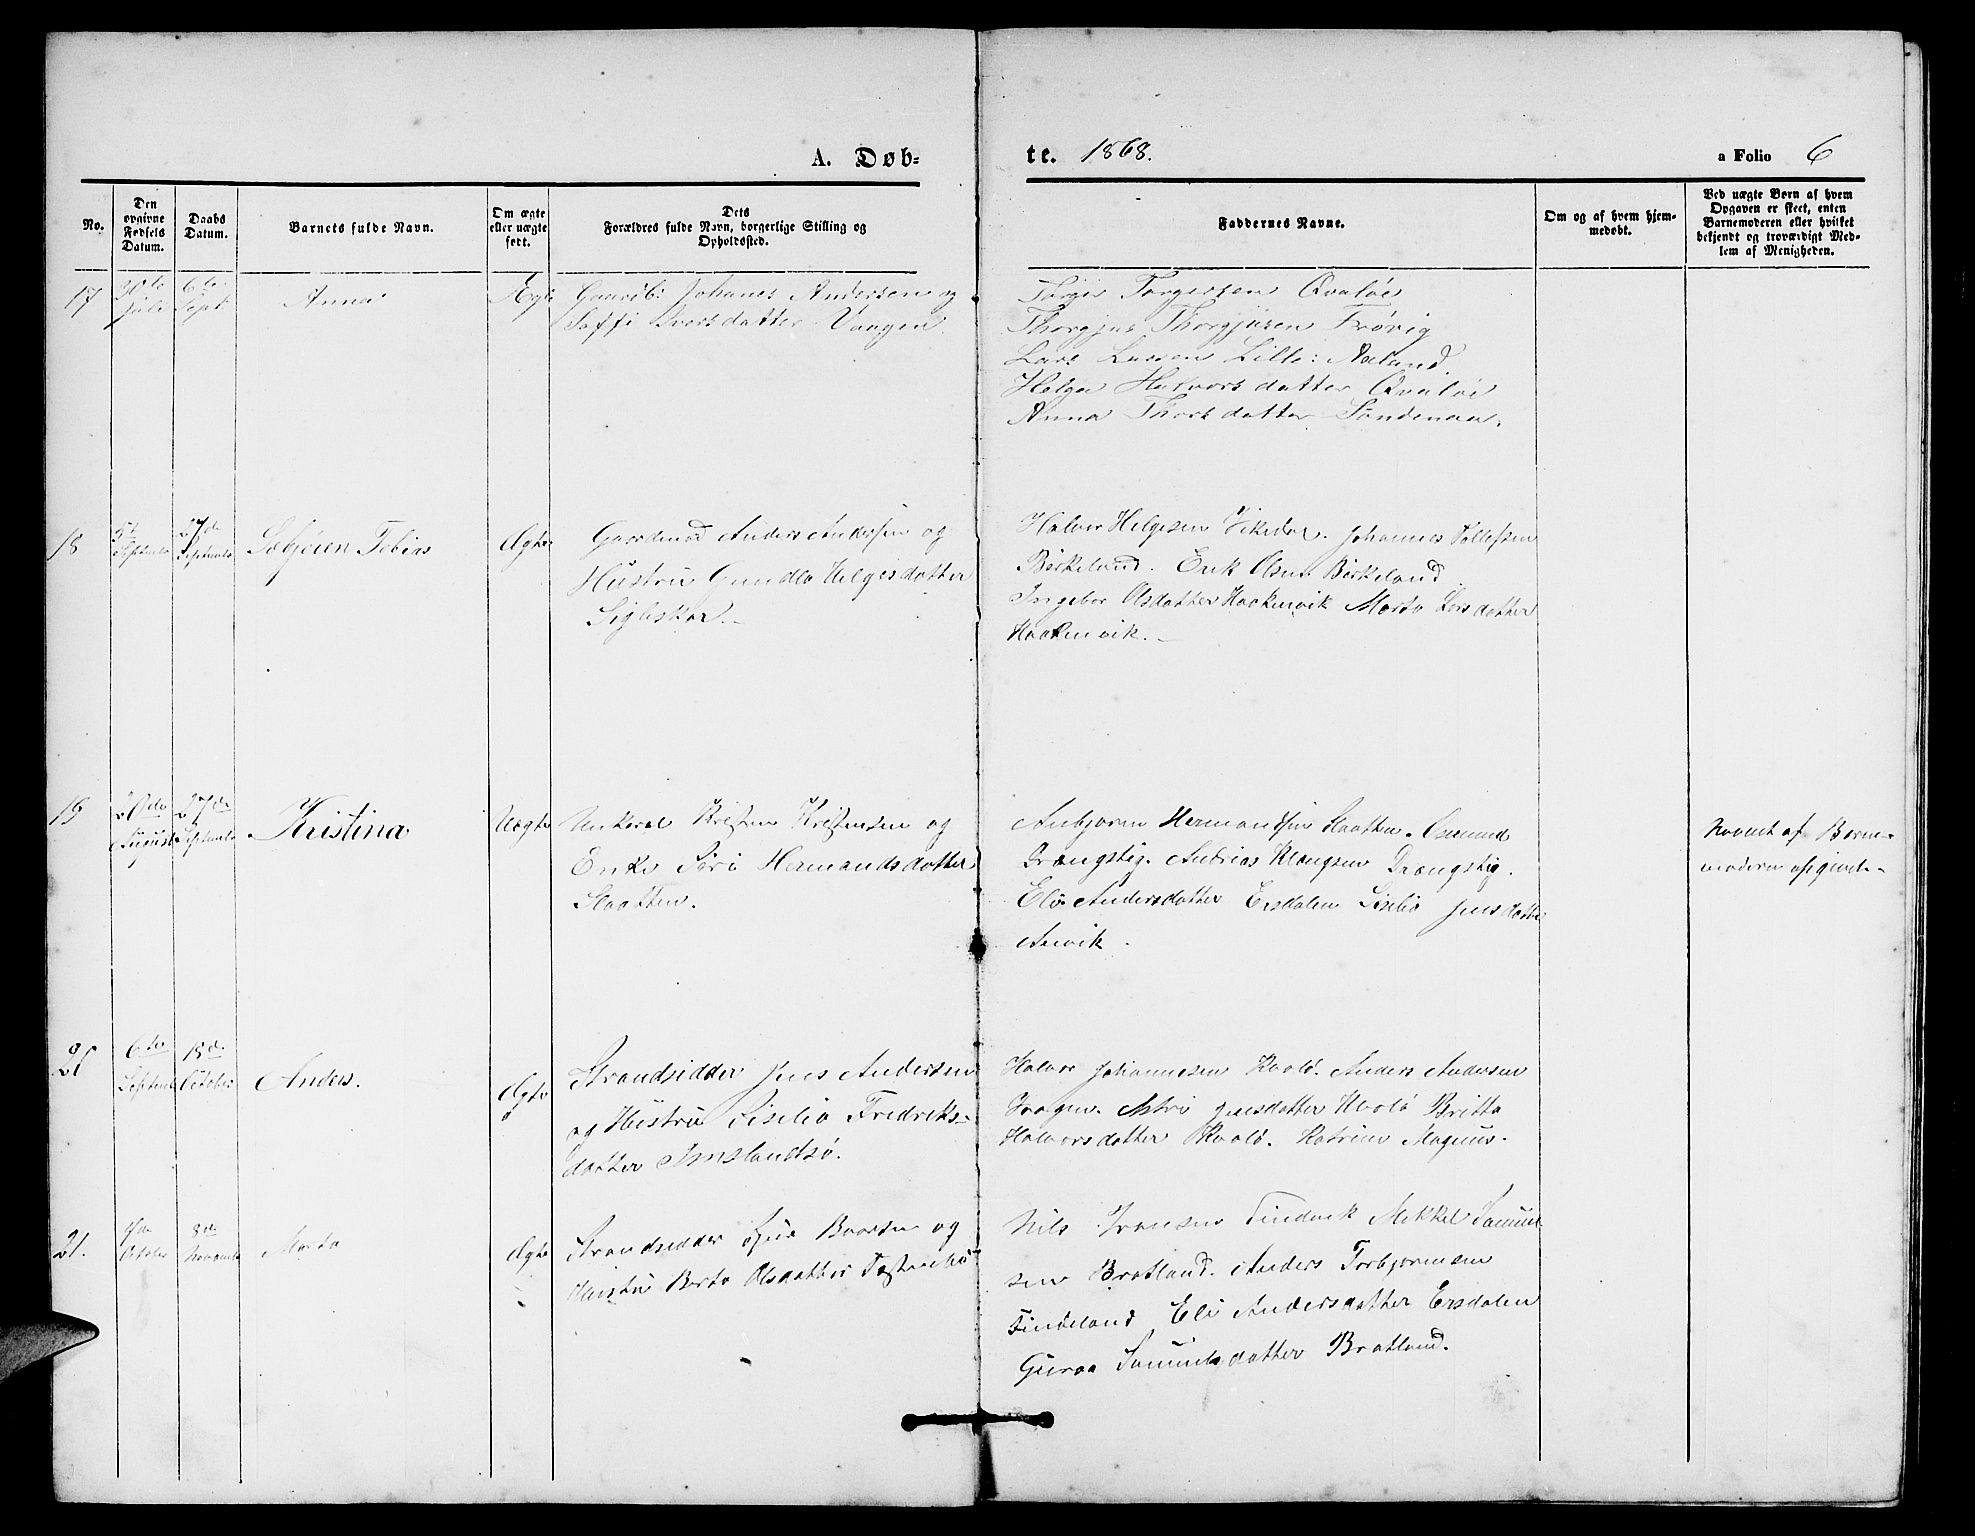 A. Døb=
te. 1868.
a Folio 6
No.
Den opgivne Fødsels Datum.
Daabs Datum.
Barnets fulde Navn.
Om ægte eller uægte født.
Dets Forældres fulde Navn, borgerlige Stilling og Opholdssted.
Faddernes Navne.
Om og af hvem hjemmedøbt.
Ved uægte Børn af hvem Opgaven er skeet, enten Barnemoderen eller hvilket bekjendt og troværdigt Medlem af Menigheden.
17
30te Juli
6te Sept
Anna
Ægte
Gaardb: Johanes Andersen og
Soffi Iversdatter Vangen
Torger Torgersen Qvaløe
Thorgjus Thorgjusen Frøvig
Lars Larsen Lille: Aaland.
Helga Halvorsdatter Qvaløe
Anna Thorsdatter Søndenaa.
18
5t Septembr
27de Septembr
Sebjøren Tobias
Ægte
Gaardmad Anders Andersen og
Hustru Gundla Helgesdatter
Digleskar.
Halvor Helgesen Vikedal. Johannes Tollefsen
Birkeland. Erik Olsen Birkeland
Ingebor Olsdatter Haakenvik Marta Larsdatter
Haakenvik.
19
20de August
27de Septembr
Kristina
Uægte
Unkarl Kristen Kristensen og
Enke Siri Hermandsdatter
Slaatten.
Anbjøren Hermandsen Slaatten. Osmund
Drængstig. Andreas Klongsen Drængstig.
Eli Andersdatter Ersdalen Siselia Jensdatter
Anvik.
Navnet af Barne-
moderen opgivet.
20
6te Septembr
18de October
Anders.
Ægte
Strandsidder Jens Andersen
og Hustru Siselia Fredriks-
datter Imslandsø.
Halvor Johannesen Kvalø. Anders Andersen
Vaagen. Astri Jensdatter Kvalø Britta
Halvorsdatter Kvalø. Katrine Magnus.
21.
4de October
8de Novembr
Marta
Ægte
Strandsidder Baarsen og
Hustru Berta Olsdatter
Nils Iversen Tindvik Mikkel Samuel
sen Bratland. Anders Torbjørnsen
Tindeland Eli Andersdatter Ersdalen
Guroa Samuelsdatter Bratland.